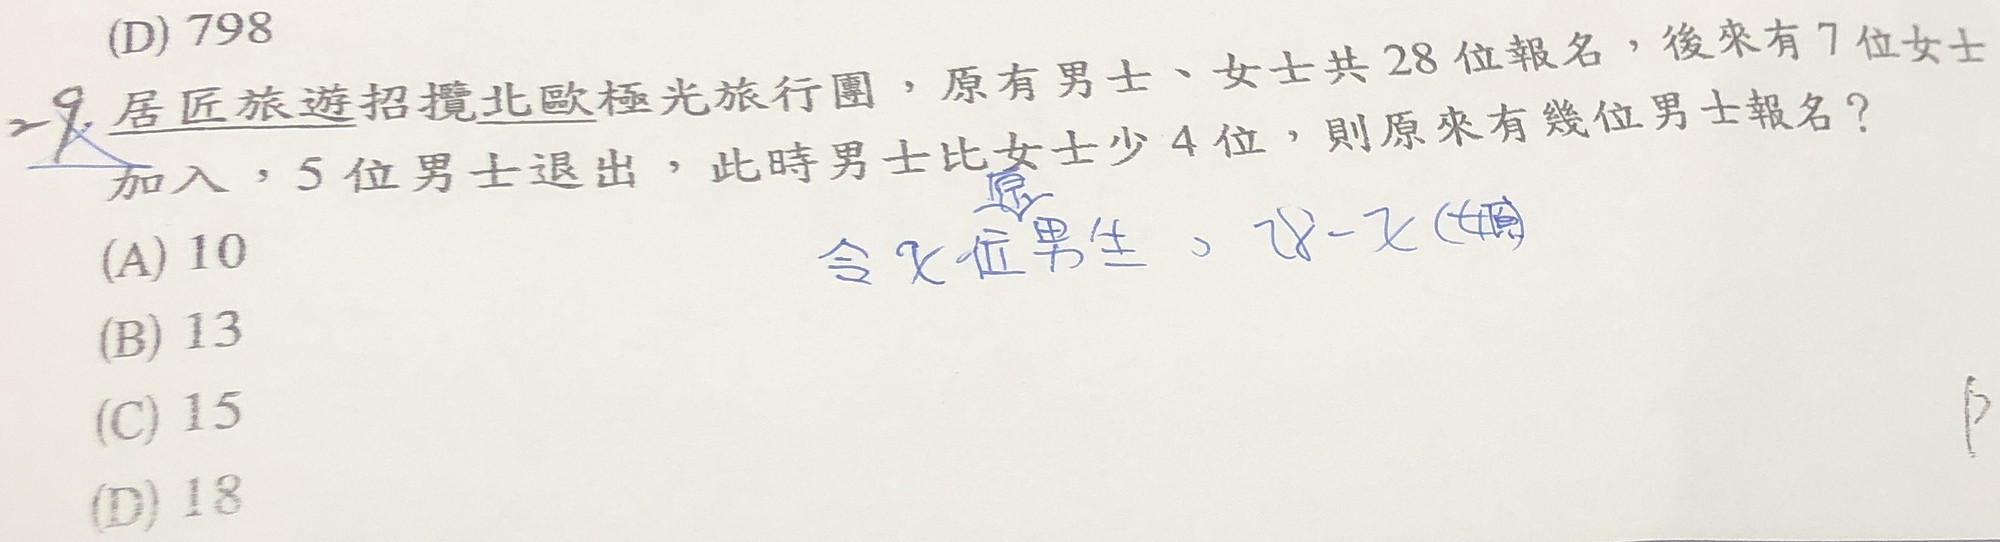 (D) 798
9. 居匠旅遊招攬北歐極光旅行團，原有男士、女士共 28 位報名，後來有 7 位女士
加入，5 位男士退出，此時男士比女士少 4 位，則原來有幾位男士報名？
原
令 x 位男生，28-x (女原)
(A) 10
(B) 13
(C) 15
(D) 18